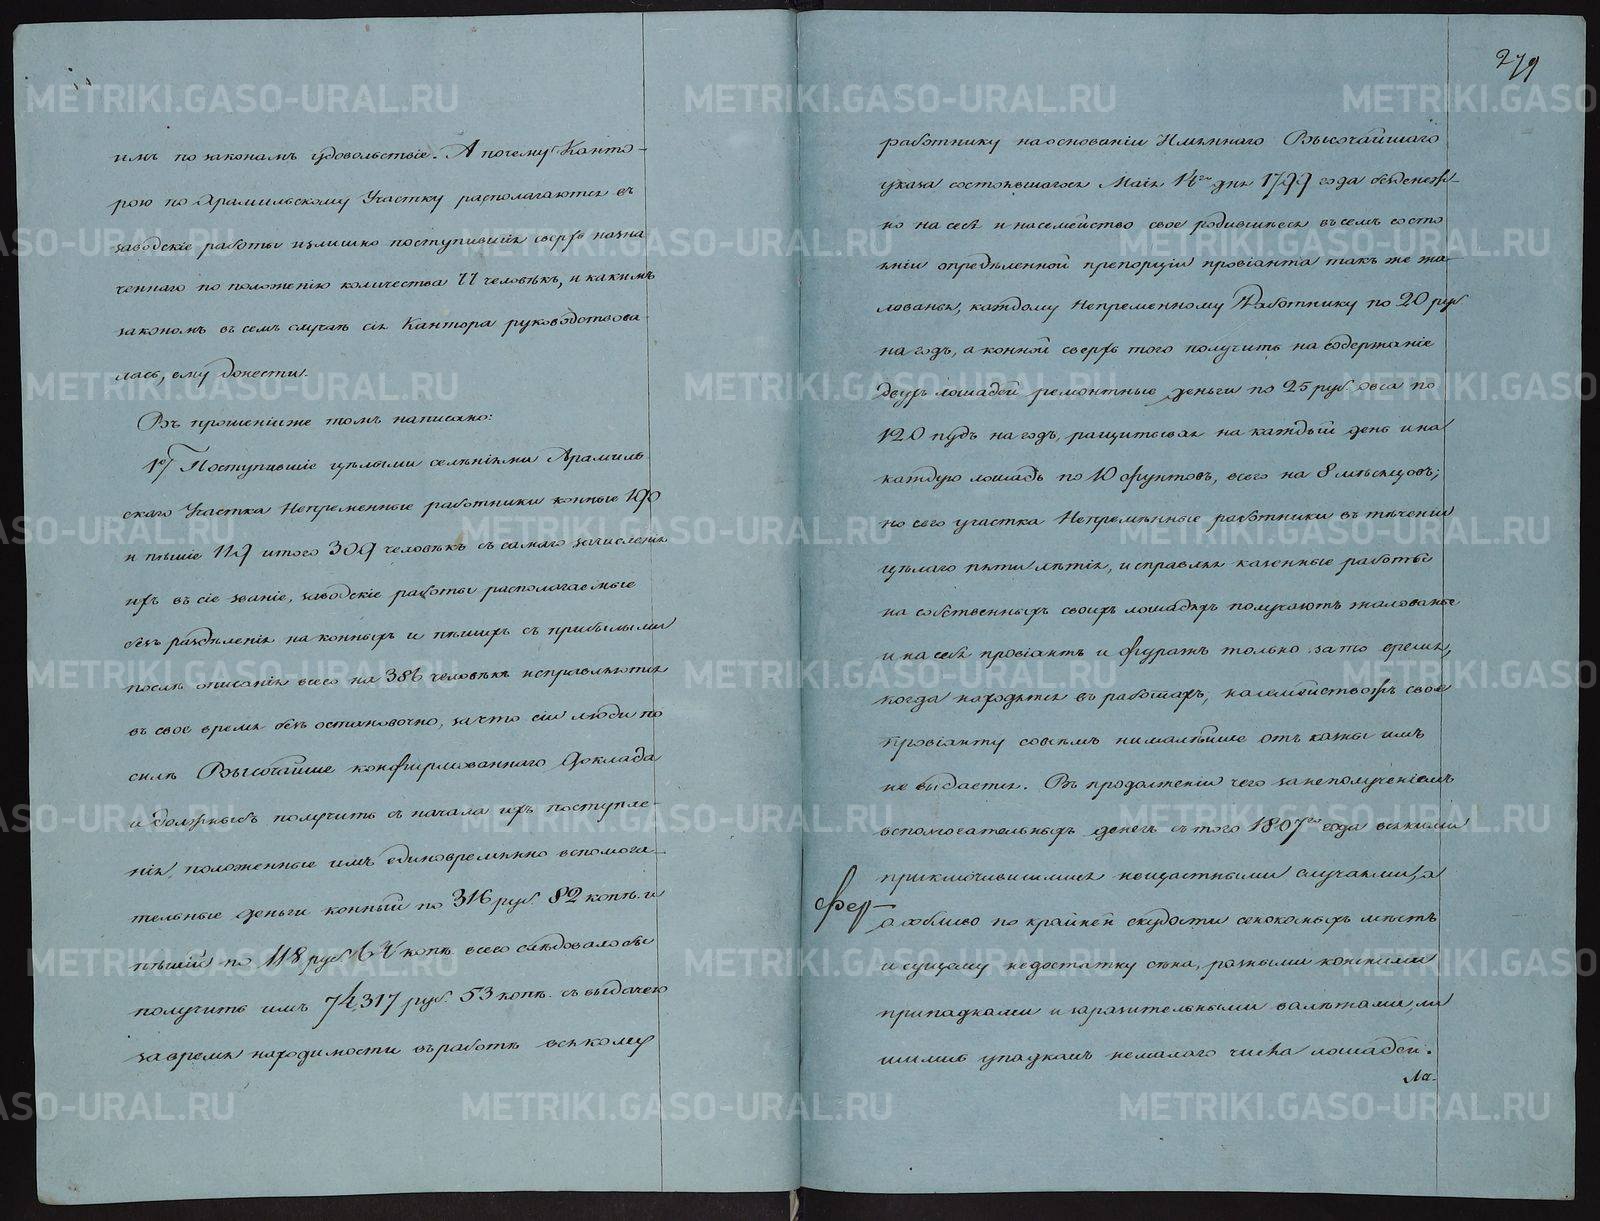 имъ по законамъ удовольствіе. А почему Канто-
рою по Арамильскому Участку располагаются въ
заводскіе работы излишно поступившія сверхъ назна
ченнаго по положенію количества 77 человѣкъ, и какимъ
закономъ въ семъ случаѣ сія Кантора руководствова
лась, ему донести.
Въ прошеніи же томъ написано:
1е) Поступившіе цѣлыми селѣніями Арамиль
скаго Участка Непременные работники конные 190
и пѣшіе 119 итого 309 человѣкъ съ самаго зачисленія
ихъ въ сіе званіе, заводскіе работы располагаемые
безъ раздѣленія на конныхъ и пѣшихъ съ прибылыми
послѣ описанія всего на 386 человѣкъ исправляются
въ свое время безъ остановочно, за что сіи люди по
силѣ Высочайше конфирмованнаго доклада
и должны бъ получить съ начала ихъ поступле-
нія, положенные имъ единовремянно вспомога-
тельные деньги конный по 316 руб. 82 копѣ. и
пѣшій по 118 руб. копѣ. всего слѣдовало бы
получить имъ 74,317 руб. 53 копѣ. съ выдачею
за время находимости въ работѣ всякому
279
работнику на основаніи Имяннаго Высочайшаго
указа состоявшагося Маія 14го дня 1799 года безденеж-
но на себя и на семейство свое родившіеся въ семъ состо
яніи опредѣленной препорціи провіанта такъ же жа-
лованья, каждому Непременному Работнику по 20 руб.
на годъ, а конной сверхъ того получить на содержаніе
двухъ лошадей ремонтные деньги по 25 руб. овса по
120 пудъ на годъ, ращитывая на каждый день и на
каждую лошадь по 10 фунтовъ, всего на 8 мѣсяцовъ;
но сего участка Непремѣнные работники въ тѣченіи
цѣлаго пяти лѣтія, исправляя казенные работы
на собственныхъ своихъ лошадяхъ получаютъ жалованье
и на себя провіантъ и фуражъ только за то время,
когда находятся въ работахъ, на семействожъ свое
провіанту совсѣмъ нималѣйше отъ казны имъ
не выдается. Въ продолженіи чего за неполученіемъ
вспомогательныхъ денегъ съ того 1807го года всякими
приключившимися нещастными случаями, а
особливо по крайней скудости сенокосныхъ мѣстъ
и сущему недостатку сѣна, разными конскими
припадками и заразительными валѣтами, ли
шились упадкамъ немалаго числа лошадей.
Ла-